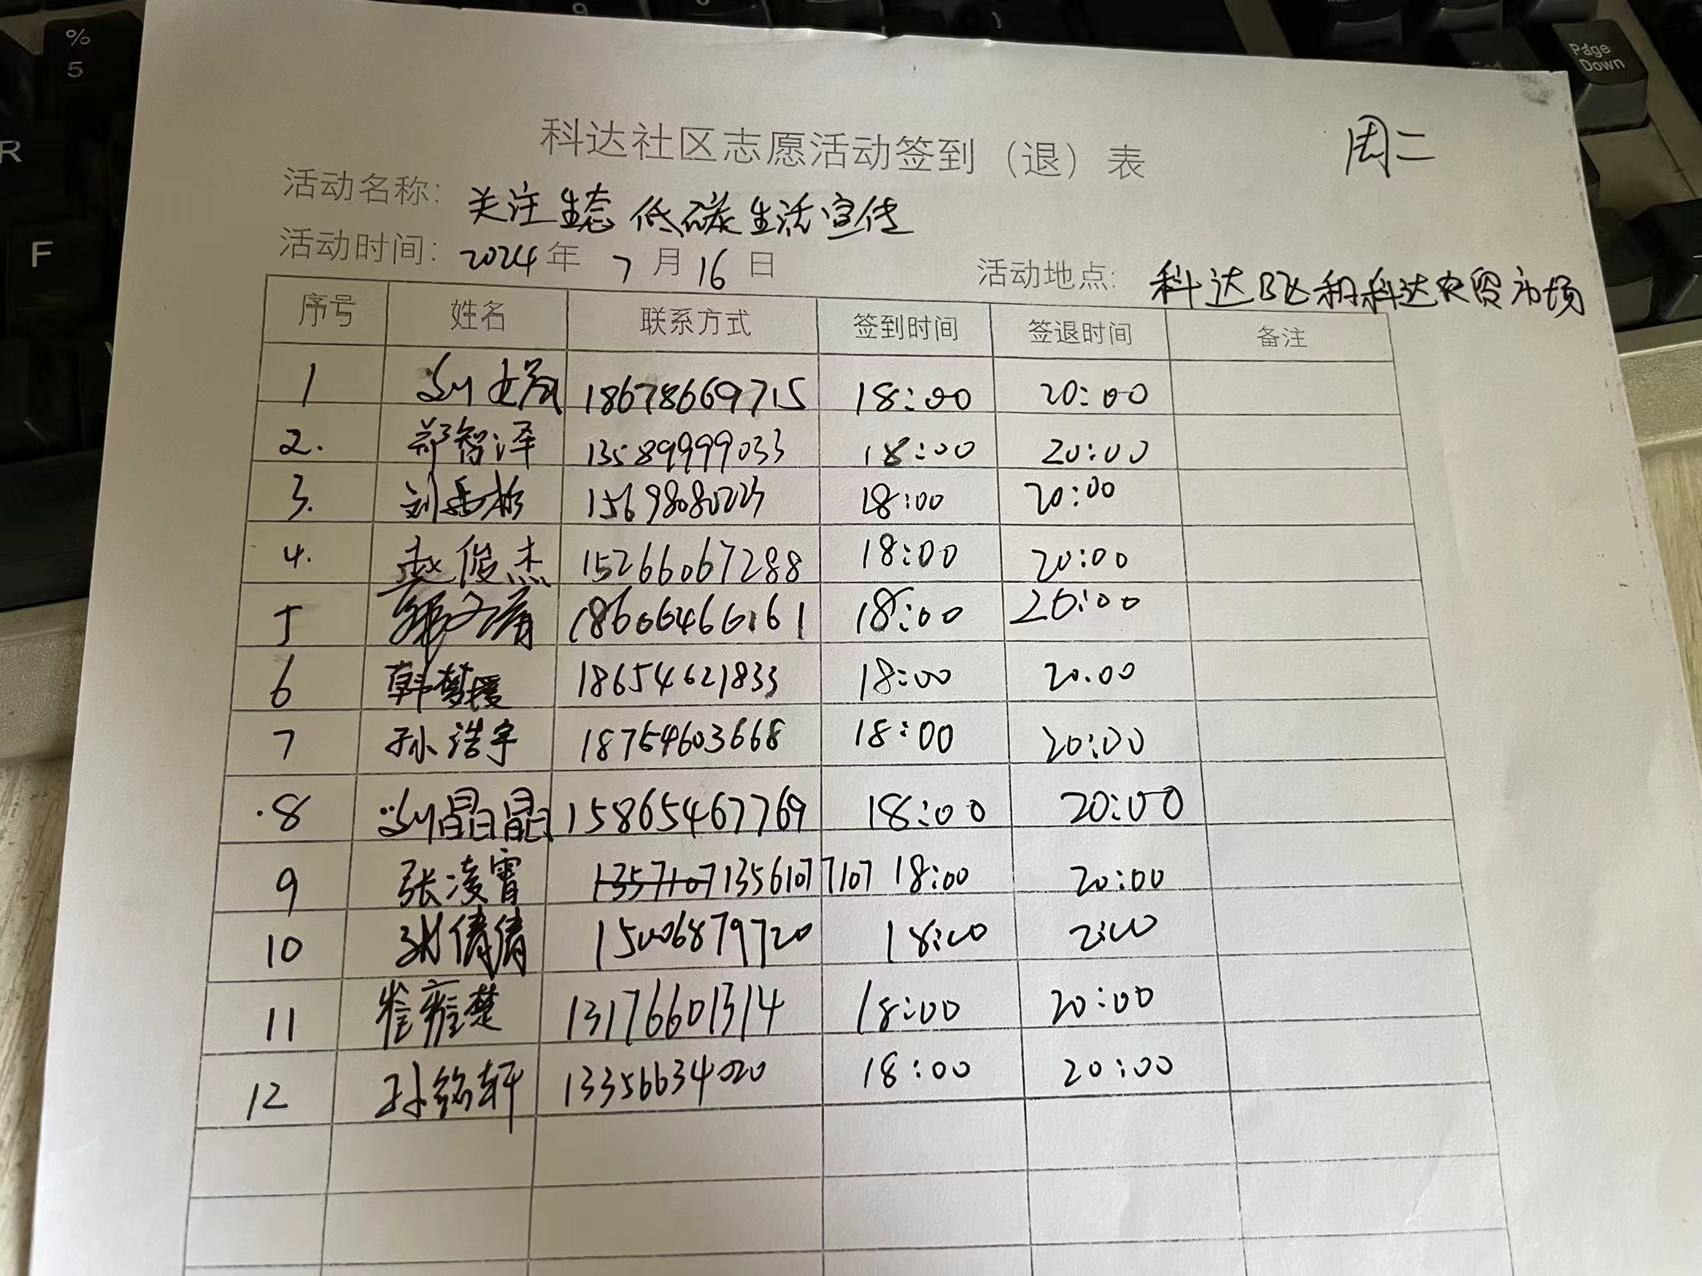 周二
科达社区志愿活动签到（退）表
活动名称: 关注生态 低碳生活宣传
活动时间: 2024年 7月16日 活动地点: 科达 和科达农贸市场
序号 姓名 联系方式 签到时间 签退时间 备注
1 18678669715 18:00 20:00
2. 郑智泽 13589999033 18:00 20:00
3. 刘 18:00 20:00
4. 赵俊杰 15266067288 18:00 20:00
5 18:00 20:00
6 韩梦媛 18654621833 18:00 20.00
7 孙浩宇 18754603668 18:00 20:00
8 刘晶晶 15865467769 18:00 20:00
9 张凌霄 13561077107 18:00 20:00
10 倩倩 15006879720 18:00 2:00
11 楚 13176601314 18:00 20:00
12 孙铭轩 13356634020 18:00 20:00
%
5
R
F
Page
Down